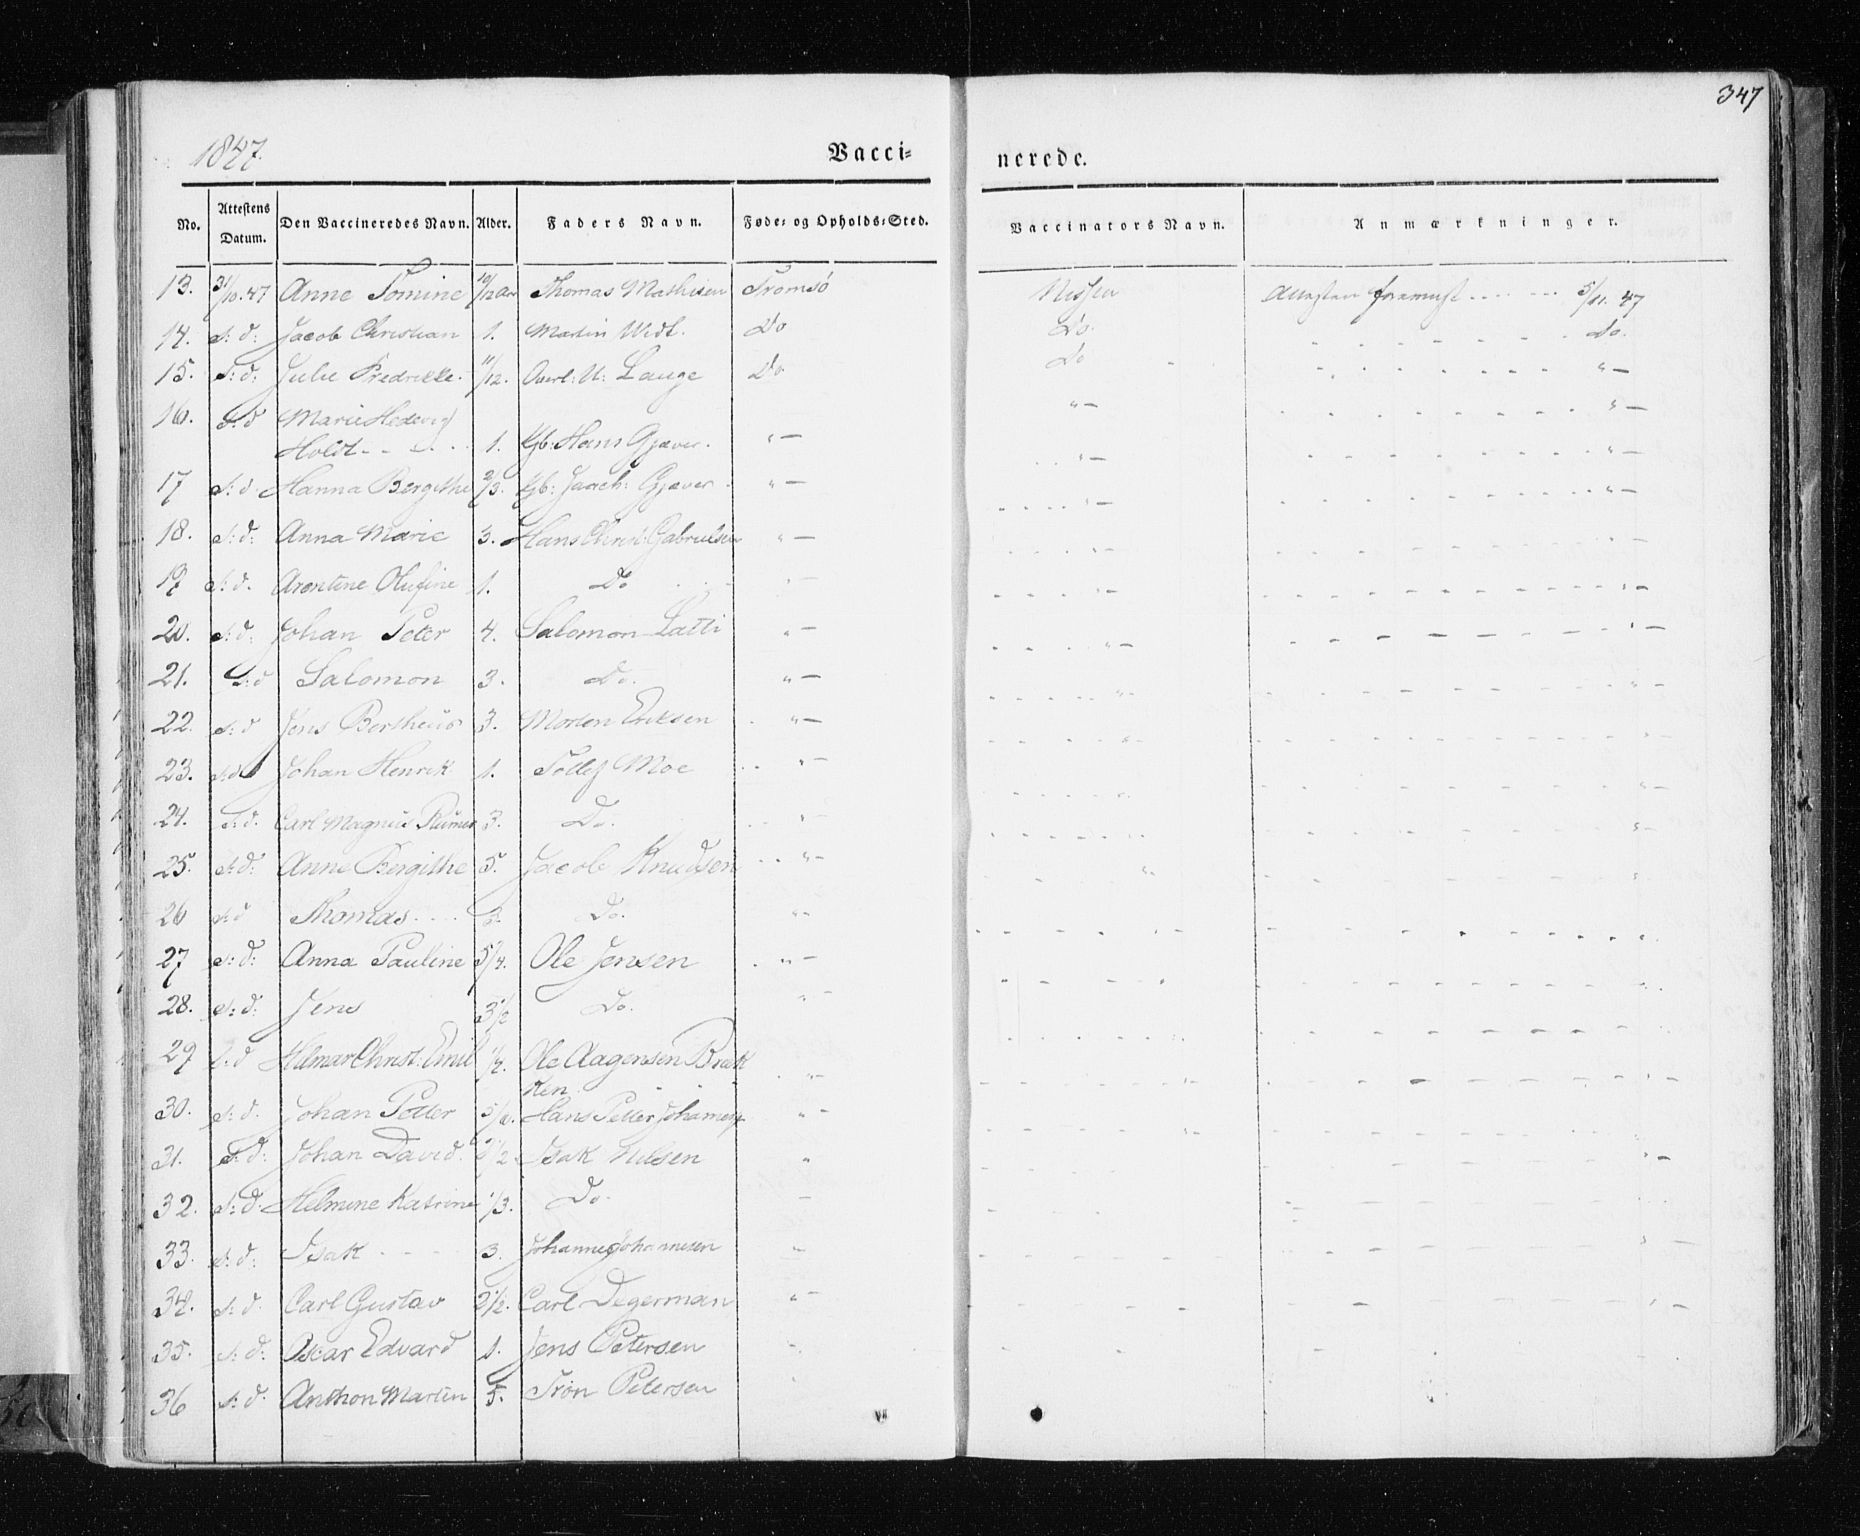 347
1847.
Vacci=
nerede.
No. Attestens Datum. Den Vaccineredes Navn. Alder. Faders Navn. Føde= og Opholds=Sted. Vaccinators Navn. Anmærkninger.
13. 31/10.47 Anne Tomine 10/12 Aar Thomas Mathisen Tromsø Nissen Attesten foreviist - - - - 5/11. 47
14. S: d: Jacob Christian 1. Martin Do Do. " - - - - - - Do.
15. S: d: Julie Fredrikke. 11/12. Overl: U: Lange Do Do " - - - - - - " —
16. S: d Marie Hedevig
Holdt - - - - 1. Kjb: Hans Gjæver. " — " — - - - - - - " —
17 S: d Hanna Bergithe 2/3. Kjb: Joach: Gjæver " — " — - - - - - - " —
18. S: d: Anna Marie 3. Hans Christ: Gabrielsen " — " — - - - - - - " —
19 S: d. Arentine Olufine 1. Do " — " — - - - - - - " —
20. S: d: Johan Peter 4. Salomon Latti " — " — - - - - - - " —
21. S: d Salomon 3. Do. " — " — - - - - - - " —
22. S: d Jens Bertheus 3. Morten Eriksen " — " — - - - - - - " —
23. S: d Johan Henrik 1. Tollef Moe " — " — - - - - - - " —
24. S: d. Carl Magnus 3. Do. " —
25. S: d: Anne Bergithe 5. Jacob Knudsen " —
26 S: d Thomas - - - Do. " —
27 S: d: Anna Pauline 5/4. Ole Jensen " —
28. S: d: Jens 3 1/2 Do. " —
29 S: d Hilmar Christ: Emil 1/4. Ole Aagensen Brek
ken. " —
30. S: d. Johan Petter Hans Petter Johannes " —
31. S: d: Johan David. Isak Nilsen "
32. S: d. Helmine Katrine 1/3. Do. —
33. S: d: Isak - - - 3. Johannes Johannesen " —
34. S: d. Carl Gustav 2 1/2. Carl Degerman " —
35. S: d: Oscar Edvard 1. Jens Petersen "
36 S: d. Anthon Martin 5. Trøn Petersen "